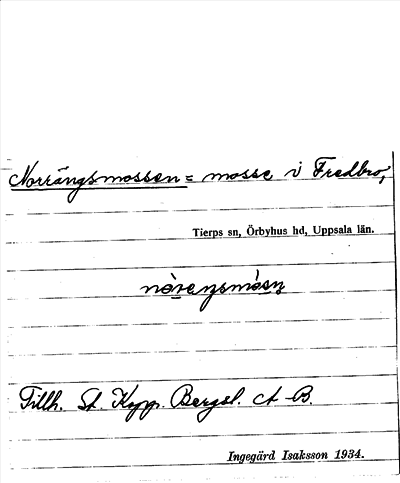 Norrängsmossen = mosse i Fredbro,
Tierps sn, Örbyhus hd, Uppsala län.
nòrεŋsmòsn̥
Tillh. St. Kopp. Bergsl. A B.
Ingegärd Isaksson 1934.